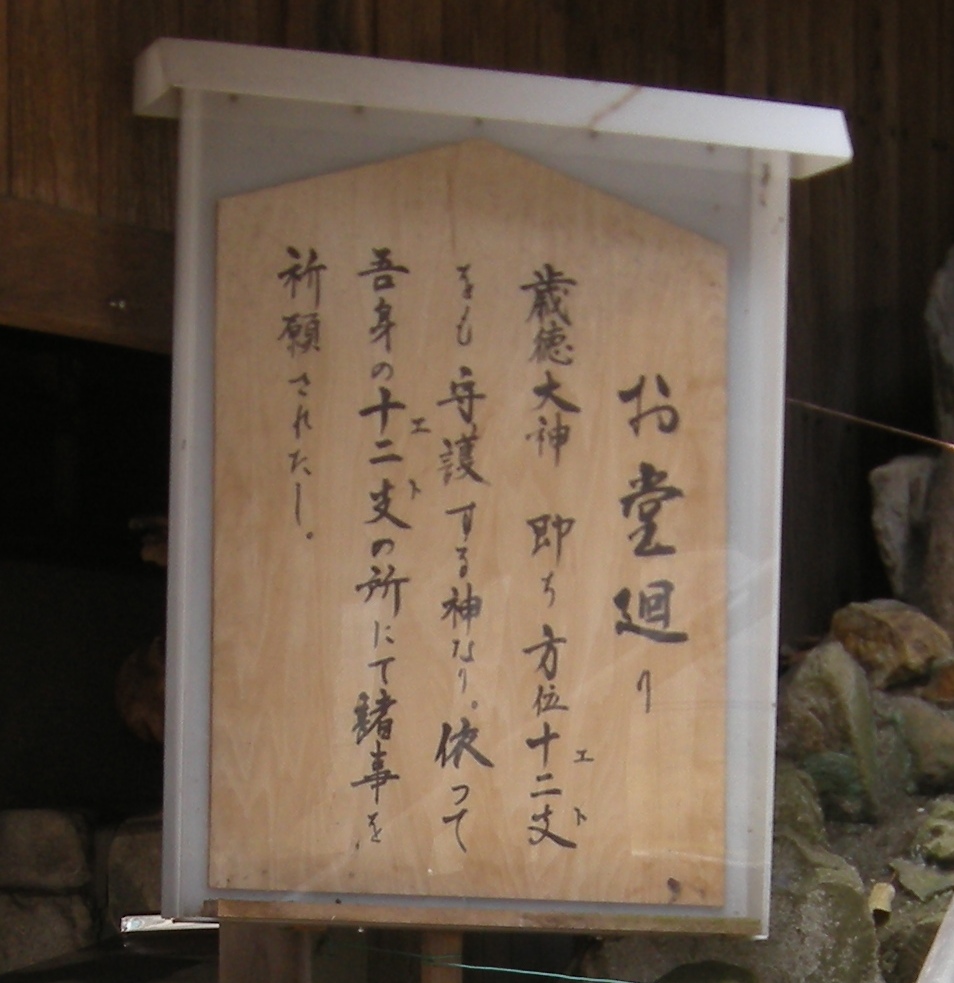 お堂廻り
歳徳大神 即ち方位十二支
エト
をも守護する神なり。依って
吾身の十二支の所にて諸事を
エト
祈願されたし。